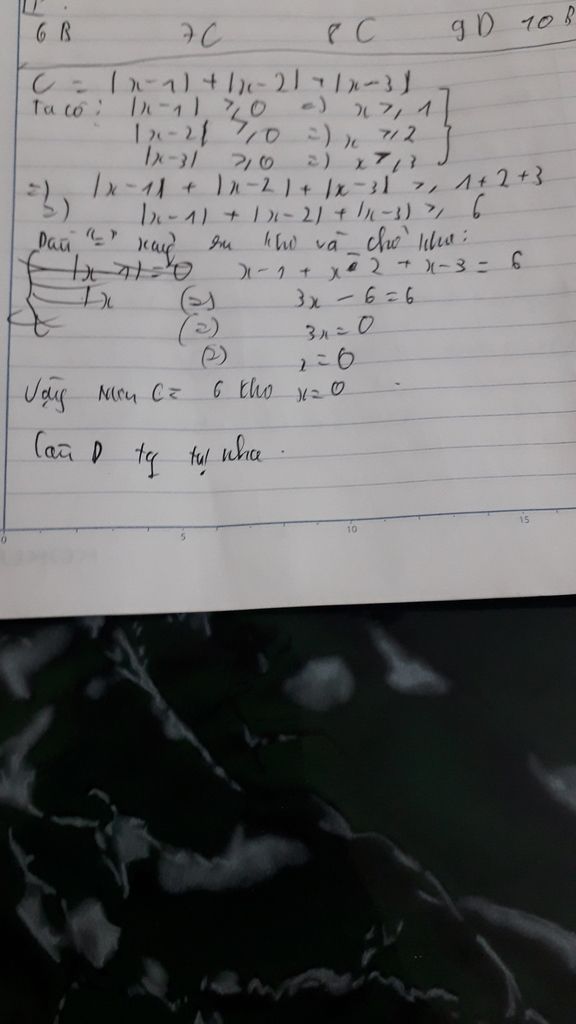 6 B 7 C 8 C 9 D 10 B
C = |x-1| + |x-2| + |x-3|
Ta có: |x-1| ≥ 0 => x ≥ 1
|x-2| ≥ 0 => x ≥ 2
|x-3| ≥ 0 => x ≥ 3
=> |x-1| + |x-2| + |x-3| ≥ 1+2+3
=> |x-1| + |x-2| + |x-3| ≥ 6
Dấu "=" xảy ra khi và chỉ khi:
x-1 + x-2 + x-3 = 6
(=) 3x - 6 = 6
(=) 3x = 0
(=) x = 0
Vậy Min C = 6 khi x = 0
Câu D tg tự nha.
0 5 10 15